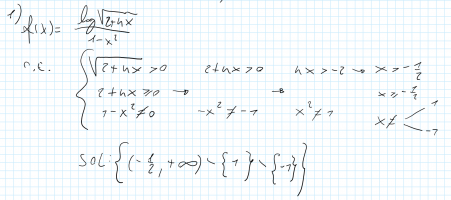 1) f(x) = log √(2+4x) / (1-x²)
C.E. { √(2+4x) > 0   2+4x > 0   4x > -2 → x > -1/2
2+4x ≥ 0 → → x ≥ -1/2
1-x² ≠ 0   -x² ≠ -1   x² ≠ 1   x ≠ < 1
-1
SOL: {(-1/2, +∞) \ {1} \ {-1}}